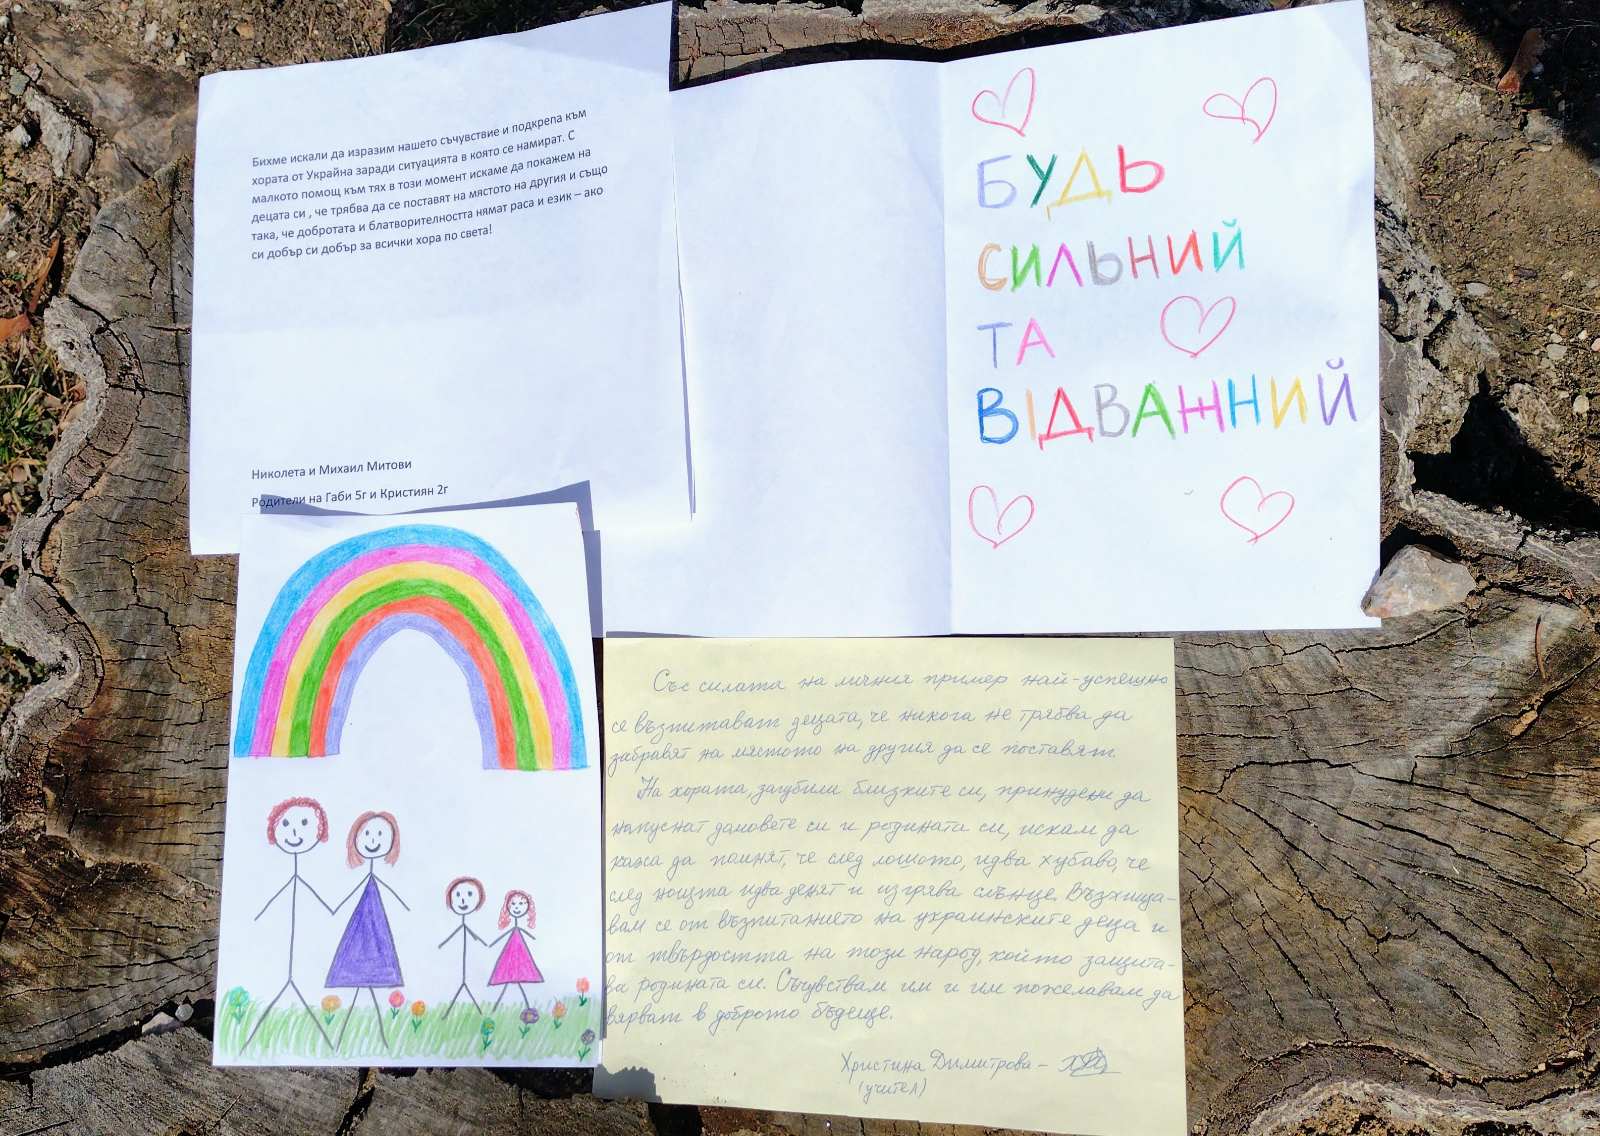 Бихме искали да изразим нашето съчувствие и подкрепа към
хората от Украйна заради ситуацията в която се намират. С
малкото помощ към тях в този момент искаме да покажем на
децата си , че трябва да се поставят на мястото на другия и също
така, че добротата и блатворителността нямат раса и език – ако
си добър си добър за всички хора по света!
Николета и Михаил Митови
Родители на Габи 5г и Кристиян 2г
БУДЬ
СИЛЬНИЙ
ТА
ВІДВАЖНИЙ
Със силата на личния пример най-успешно
се възпитават децата, че никога не трябва да
забравят на мястото на другия да се поставят.
На хората, загубили близките си, принудени да
напуснат домовете си и родината си, искам да
кажа да помнят, че след лошото, идва хубаво, че
след нощта идва денят и изгрява слънце. Възхища-
вам се от възпитанието на украинските деца и
от твърдостта на този народ, който защита-
ва родината си. Съчувствам им и им пожелавам да
вярват в доброто бъдеще.
Христина Димитрова –
(учител)